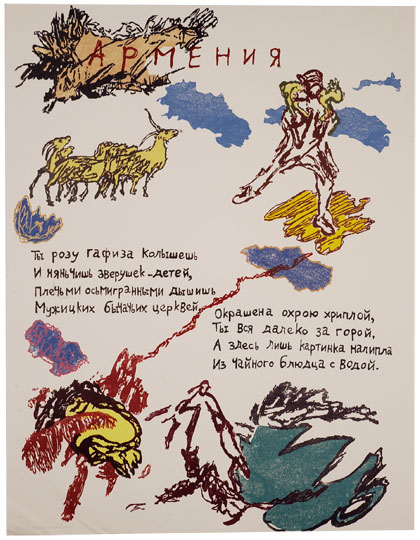 АРМЕНИЯ
Ты розу Гафиза колышешь
И няньчишь зверушек-детей,
Плечьми осьмигранными дышишь
Мужицких бычачьих церквей.
Окрашена охрою хриплой,
Ты вся далеко за горой,
А здесь лишь картинка налипла
Из чайного блюдца с водой.